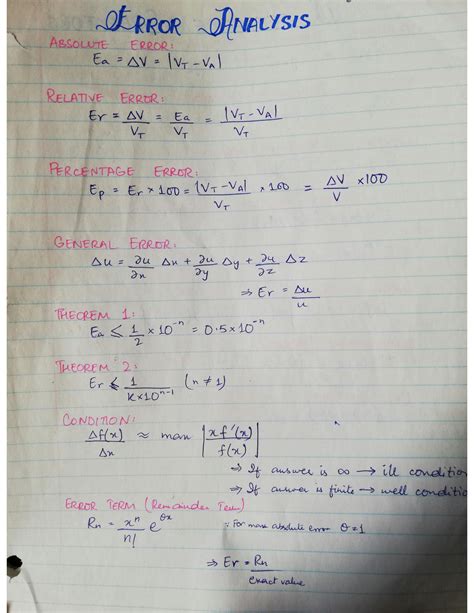 ERROR ANALYSIS
ABSOLUTE ERROR:
Ea = ΔV = |V_T - V_A|
RELATIVE ERROR:
Er = ΔV/V_T = Ea/V_T = |V_T - V_A|/V_T
PERCENTAGE ERROR:
Ep = Er × 100 = |V_T - V_A|/V_T × 100 = ΔV/V × 100
GENERAL ERROR:
Δu = ∂u/∂x Δx + ∂u/∂y Δy + ∂u/∂z Δz
⇒ Er = Δu/u
THEOREM 1:
Ea ≤ 1/2 × 10^-n = 0.5 × 10^-n
THEOREM 2:
Er ≤ 1/(K×10^(n-1)) (n ≠ 1)
CONDITION:
Δf(x)/Δx ≈ max |x f'(x)/f(x)|
⇒ If answer is ∞ → ill conditio
⇒ If answer is finite → well conditio
ERROR TERM (Remainder Term)
Rn = x^n/n! e^(θx) : For max absolute error θ = 1
⇒ Er = Rn/exact value